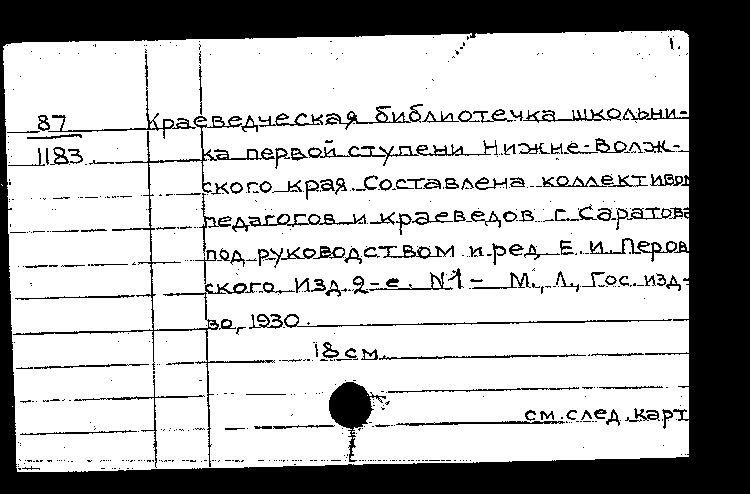 1.
87 Краеведческая библиотечка школьни-
1183. ка первой ступени Нижне-Волж-
ского края. Составлена коллективом
педагогов и краеведов г. Саратова
под руководством и ред. Е. И. Перов
ского. Изд. 2-е. N1- М., Л., Гос. изд-
во, 1930.
18 см.
см. след. карт